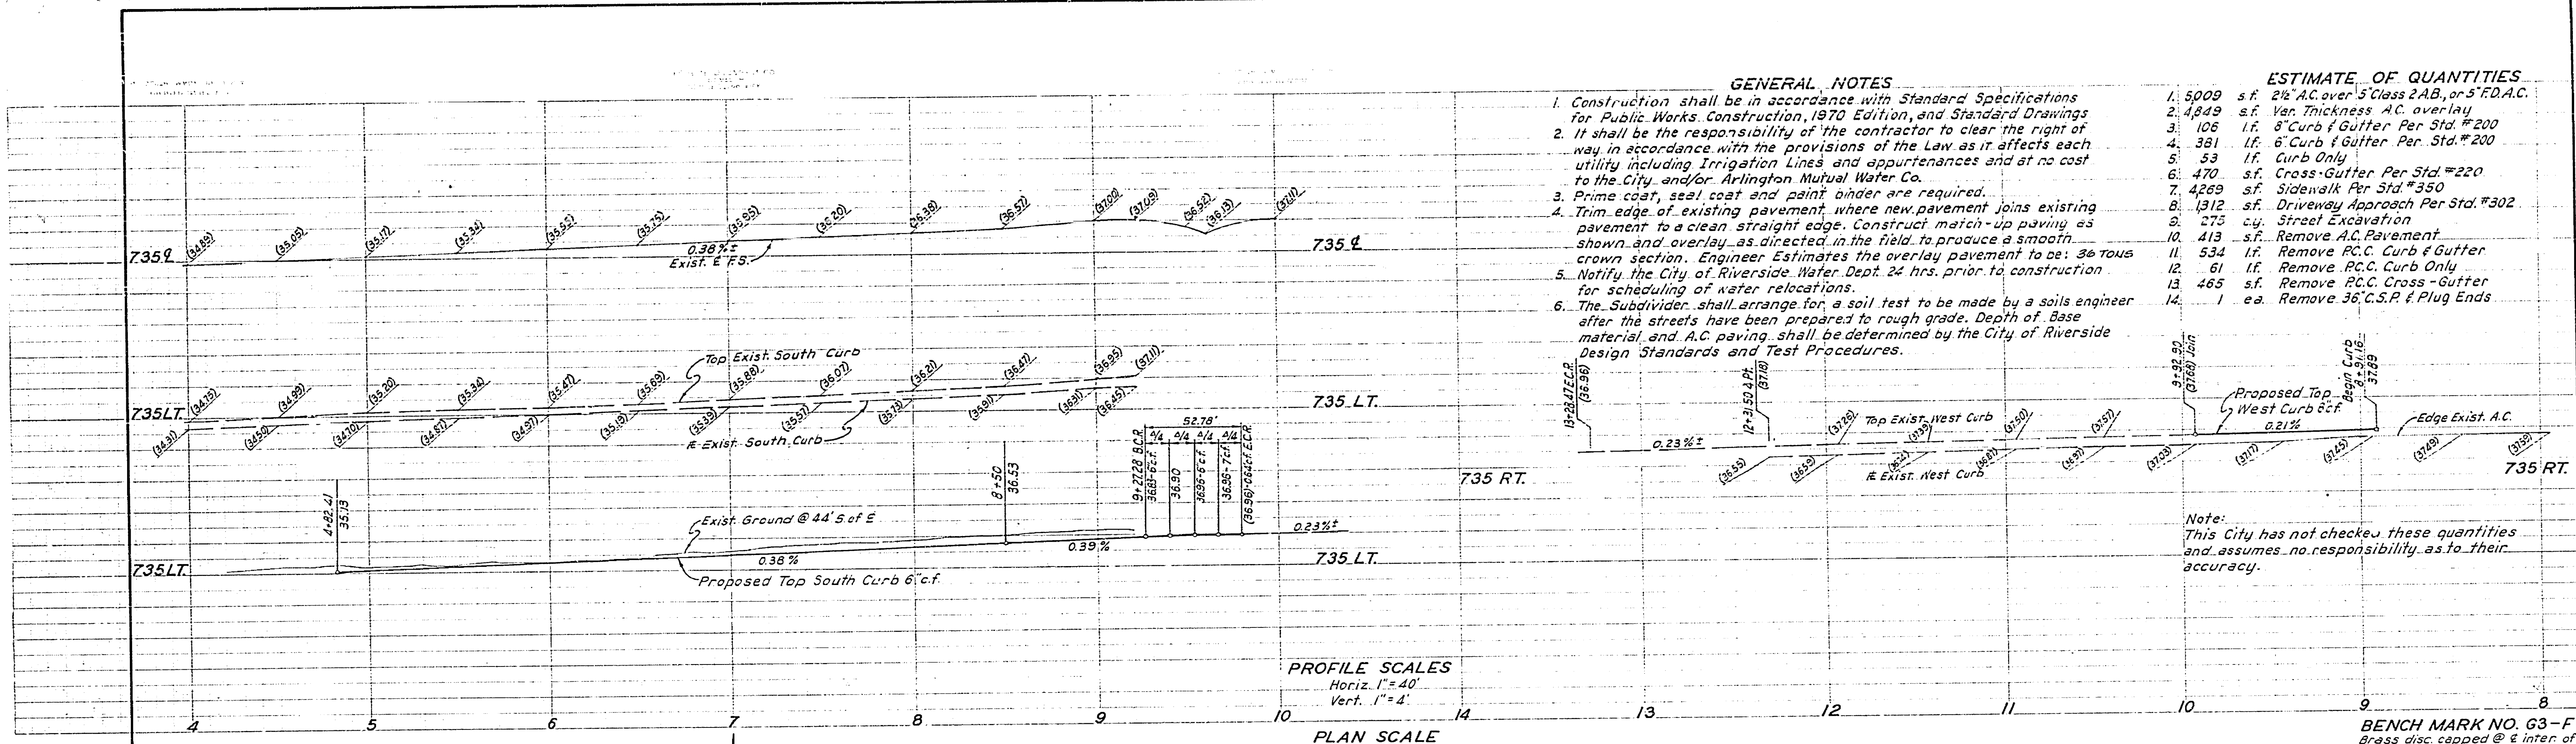 GENERAL NOTES
1. Construction shall be in accordance with Standard Specifications
for Public Works Construction, 1970 Edition, and Standard Drawings
2. It shall be the responsibility of the contractor to clear the right of
way in accordance with the provisions of the Law as it affects each
utility including Irrigation Lines and appurtenances and at no cost
to the City and/or Arlington Mutual Water Co.
3. Prime coat, seal coat and paint binder are required.
4. Trim edge of existing pavement where new pavement joins existing
pavement to a clean straight edge. Construct match-up paving as
shown and overlay as directed in the field to produce a smooth
crown section. Engineer Estimates the overlay pavement to be: 36 TONS
5. Notify the City of Riverside Water Dept. 24 hrs. prior to construction
for scheduling of water relocations.
6. The Subdivider shall arrange for a soil test to be made by a soils engineer
after the streets have been prepared to rough grade. Depth of Base
material and A.C. paving shall be determined by the City of Riverside
Design Standards and Test Procedures.
ESTIMATE OF QUANTITIES
1. 5,009 s.f. 2½" A.C. over 5" Class 2 A.B., or 5" F.D.A.C.
2. 4,849 s.f. Var. Thickness A.C. overlay
3. 106 l.f. 8" Curb & Gutter Per Std. #200
4. 381 l.f. 6" Curb & Gutter Per Std. #200
5. 53 l.f. Curb Only
6. 470 s.f. Cross-Gutter Per Std. #220
7. 4,269 s.f. Sidewalk Per Std. #350
8. 1,312 s.f. Driveway Approach Per Std. #302
9. 275 c.y. Street Excavation
10. 413 s.f. Remove A.C. Pavement
11. 534 l.f. Remove P.C.C. Curb & Gutter
12. 61 l.f. Remove P.C.C. Curb Only
13. 465 s.f. Remove P.C.C. Cross-Gutter
14. 1 ea. Remove 36" C.S.P. & Plug Ends
(34.89) (35.05) (35.17) (35.34) (35.55) (35.75) (35.95) (36.20) (36.38) (36.57) (37.00) (37.09) (36.52) (36.13) (37.11)
735 ℄
0.38%±
Exist. ℄ F.S.
735 ℄
Top Exist. South Curb
(34.75) (34.99) (35.20) (35.34) (35.47) (35.69) (35.88) (36.07) (36.21) (36.47) (36.95) (37.11)
735 LT.
735 LT.
(34.31) (34.50) (34.70) (34.87) (34.97) (35.19) (35.39) (35.57) (35.73) (35.91) (36.31) (36.45)
℄ Exist. South Curb
52.78'
Δ/4 Δ/4 Δ/4 Δ/4
4+82.41
35.13
8+50
36.53
9+27.28 B.C.R.
36.83-6"c.f.
36.90
36.96-6"c.f.
36.96-7"c.f.
(36.96)-0.64'c.f. E.C.R.
Exist. Ground @ 44' S. of ℄
0.38%
0.39%
0.23%±
735 LT.
735 LT.
Proposed Top South Curb 6"c.f.
13+28.47 E.C.R.
(36.96)
12+31.50 A.Pt.
(37.18)
9+92.90
(37.68) Join
Begin Curb
8+91.16
37.89
Proposed Top
West Curb 6"c.f.
0.23%±
(37.26) Top Exist. West Curb (37.39) (37.50) (37.57)
0.21%
Edge Exist. A.C.
735 RT.
(36.55) (36.59) (36.81) (36.97) (37.03) (37.17) (37.45) (37.49) (37.59)
℄ Exist. West Curb
735 RT.
Note:
This City has not checked these quantities
and assumes no responsibility as to their
accuracy.
PROFILE SCALES
Horiz. 1"=40'
Vert. 1"=4'
4 5 6 7 8 9 10 14 13 12 11 10 9 8
PLAN SCALE
BENCH MARK NO. G3-F
Brass disc. capped @ ℄ inter. of